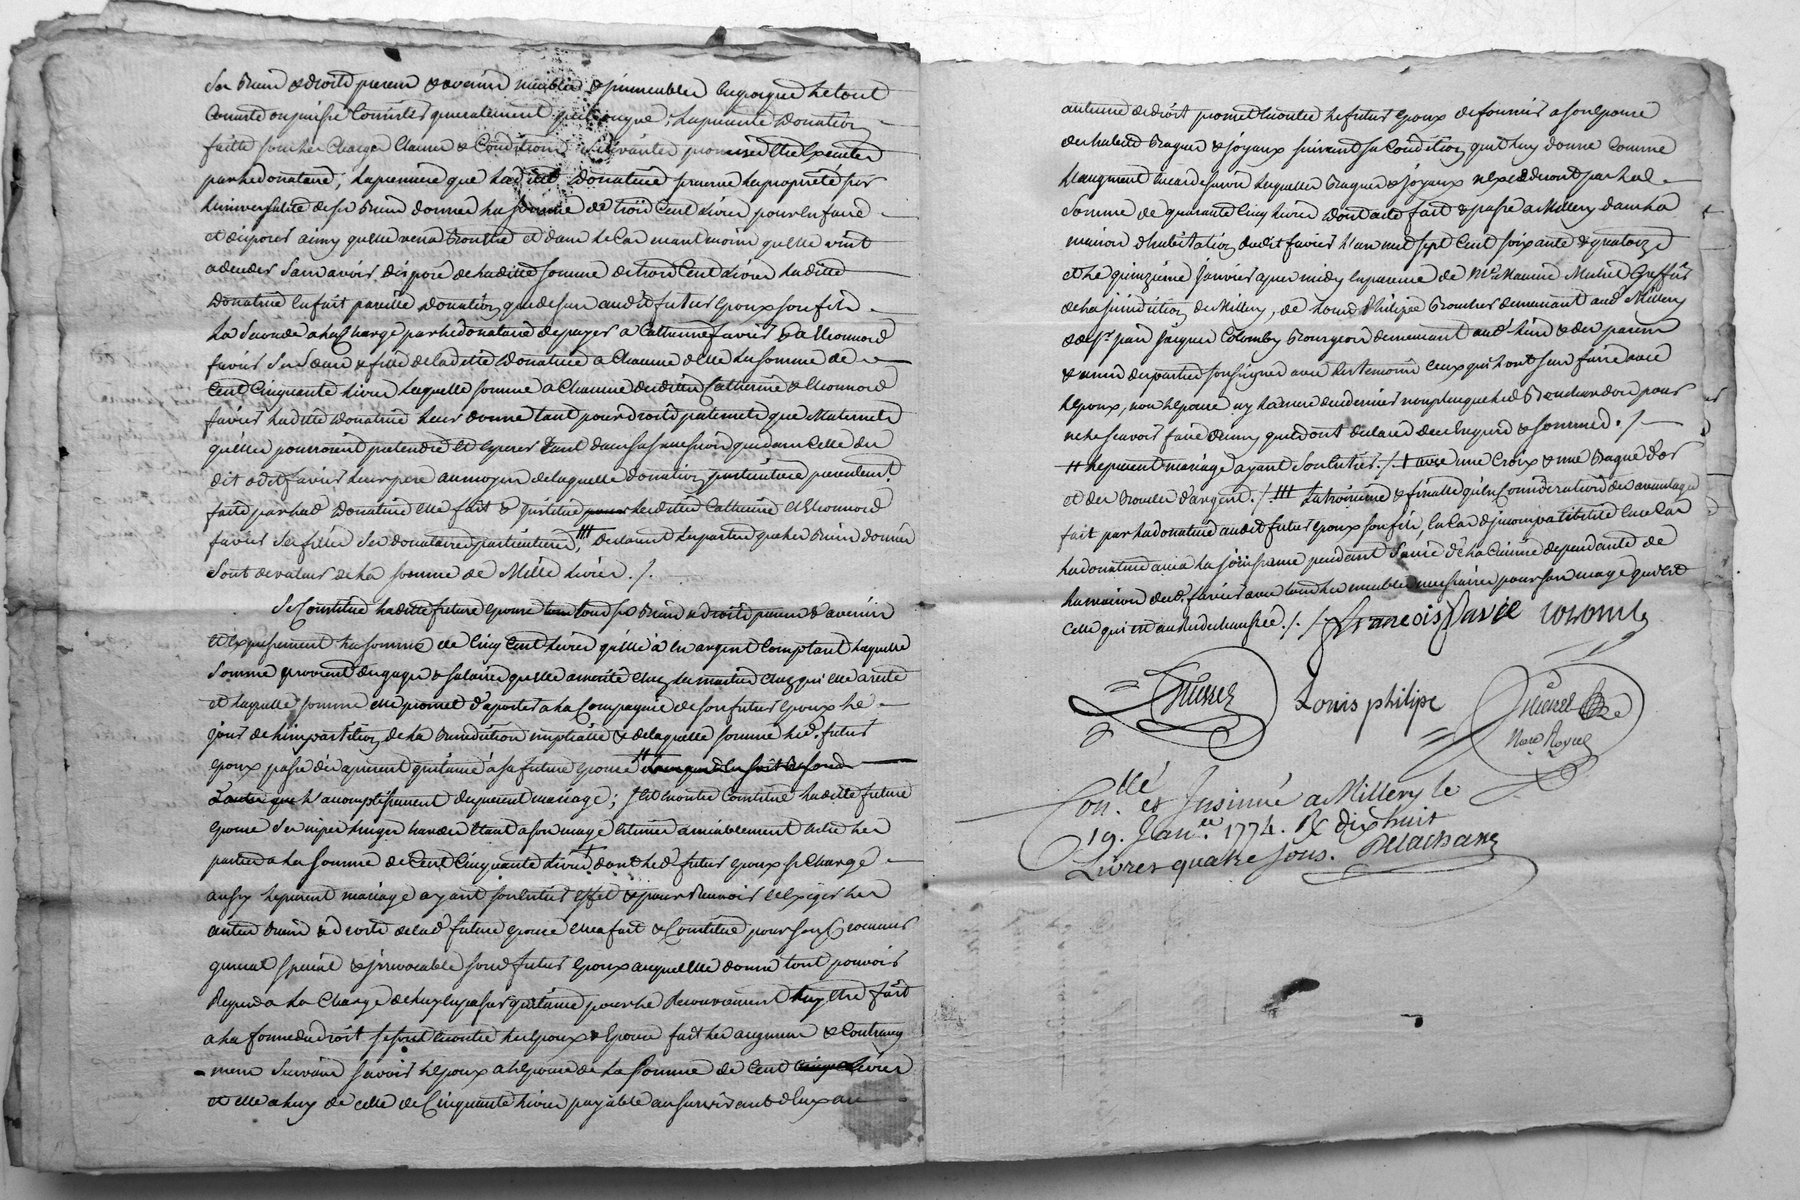 Ses Biens & droits presens & avenir meubles & immeubles en quoique le tout
Consiste ou puisse Consister generalement quelconque ; la presente Donation
faitte sous les Charges Clauses & Conditions suivantes promises etre Executées
par le donataire ; la premiere que ladite Donatrice se reserve la proprieté sur
l'universalité de ses Biens donnés la somme de trois Cent livres pour en faire
et disposer ainsy quelle verra Bon etre et dans le Cas neantmoins quelle vint
a deceder sans avoir disposé de laditte somme de trois Cent livres laditte
Donatrice en fait pareille Donation que dessus audit futur epoux son fils
La Seconde a la Charge par le donataire de payer a Catherine favier & a Leonnord
favier ses Sœurs & filles de ladite Donatrice a Chacune delle la somme de
Cent Cinquante livres laquelle somme a Chacune desdites Catherine & Leonnord
favier ladite Donatrice leur donne tant pour droits paternels que Maternels
quelles pourroient pretendre et esperer tant dans sa succession que dans Celle du
dit odit favier leur pere au moyen de laquelle donation particuliere presentement
faite par lad Donatrice elle fait & institue lesdites Catherine et Leonnord
favier ses filles ses donataires particulieres, ||| declarant les parties que les Biens donnés
Sont de valeur de la somme de Mille livres ./.
Se Constitue laditte future epouse tous ses Biens & droits presens & avenir
et expressement la somme de Cinq Cent livres qu'elle a en argent Comptant laquelle
somme provient des gages & salaires quelle a merité chez les maitres chez qui elle a resté
et laquelle somme elle promet d'aporter a la Compagnie de son futur epoux le
jour de l'impartition de la Benediction nuptialle & de laquelle somme led. futur
epoux passe dès apresent quitance a sa future epouse
l'accomplissement du present mariage ; se outre Constitue laditte future
epouse ses nipes linges hardes etant a son usage estimés amiablement entre les
parties a la somme de Cent Cinquante livres † dont led. futur epoux se Charge
ausy le present mariage ayant son entier effet & pour Recevoir et exiger les
autres Biens & droits de lad future epouse elle a fait & Constitué pour son procureur
general special & irrevocable son d futur epoux auquel elle donne tout pouvoir
Requis a la Charge de luy en passer quitance pour le Recouvrement luy etre fait
a la forme du droit se sont en outre les epoux & epouse fait les augment & Contraug
ment Suivants savoir l'epoux a l'epouse de la somme de Cent livres
et elle a luy de celle de Cinquante livres payable au survivant d'eux au
au terme de droit promet en outre le futur epoux de fournir a son epouse
des habits Bagues & joyaux suivant sa Condition qu'il luy donne comme
l'augment en cas de survie lesquelles Bagues & joyaux n'excederont pas la
Somme de quarante Cinq livres Dont acte fait & passé a Millery dans la
maison d'habitation dudit favier l'an mil sept Cent soixante & quatorze
et le quinzieme janvier apres midy en presence de Mre Maurice Michel Greffier
de la jurisdiction de Millery, de Louis Philippe Boucher demeurant aud Millery
& de Sr jean jacques Colomby Bourgeois demeurant aud lieu & des parens
& amis des parties soussignés avec les temoins ceux qui l'ont sceu faire avec
l'epoux, non l'epouse ny la mere de ce dernier non plus que led pour
ne le scavoir faire ainsy quils ont declaré de ce Enquis & sommés ./.
|| le present mariage ayant son entier ./. † avec une Croix & une Bague d'or
et des Boucles d'argent ./. ||| La troisieme & finalle qu'en Consideration des avantages
fait par la donatrice audit futur epoux son fils, en Cas d'incompatibilité en ce Cas
la donatrice aura la jouissance pendant sa vie de la Cuisine dependante de
la maison dud. favier avec tous les meubles necessaires pour son usage qui est
Celle qui est au rez de chaussée ./. francois favié colomby
Michel Louis philipe Michel
Nore Royal
Con.llé et Insinué a Millery le
19. Janer. 1774. R dix huit
Livres quatre sous. Delachanz